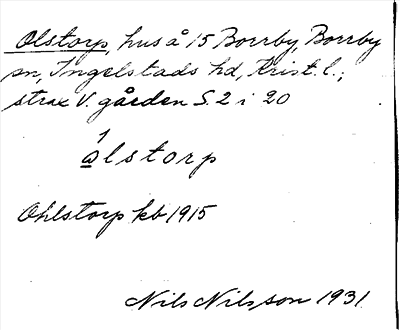 Olstorp, hus å 15 Borrby, Borrby
sn, Ingelstads hd, Krist. l.;
strax V. gården S. 2 i 20
ó̲lstorp
Ohlstorp kb 1915
Nils Nilsson 1931